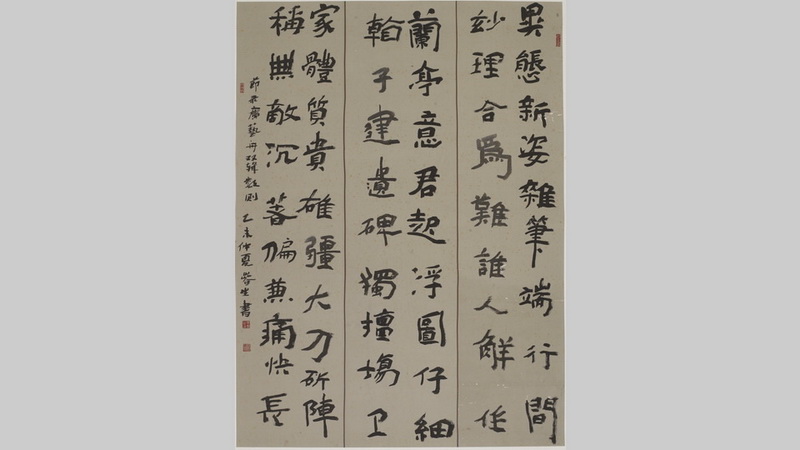 異態新姿雜筆端行間
妙理合爲難誰人解任
蘭亭意君起浮圖仔細
翰子建遺碑獨擅場卫
家體質貴雄彊大刀斫陣
稱無敵沉著偏兼痛快長
節 廣藝舟双楫 則 乙未仲夏 書